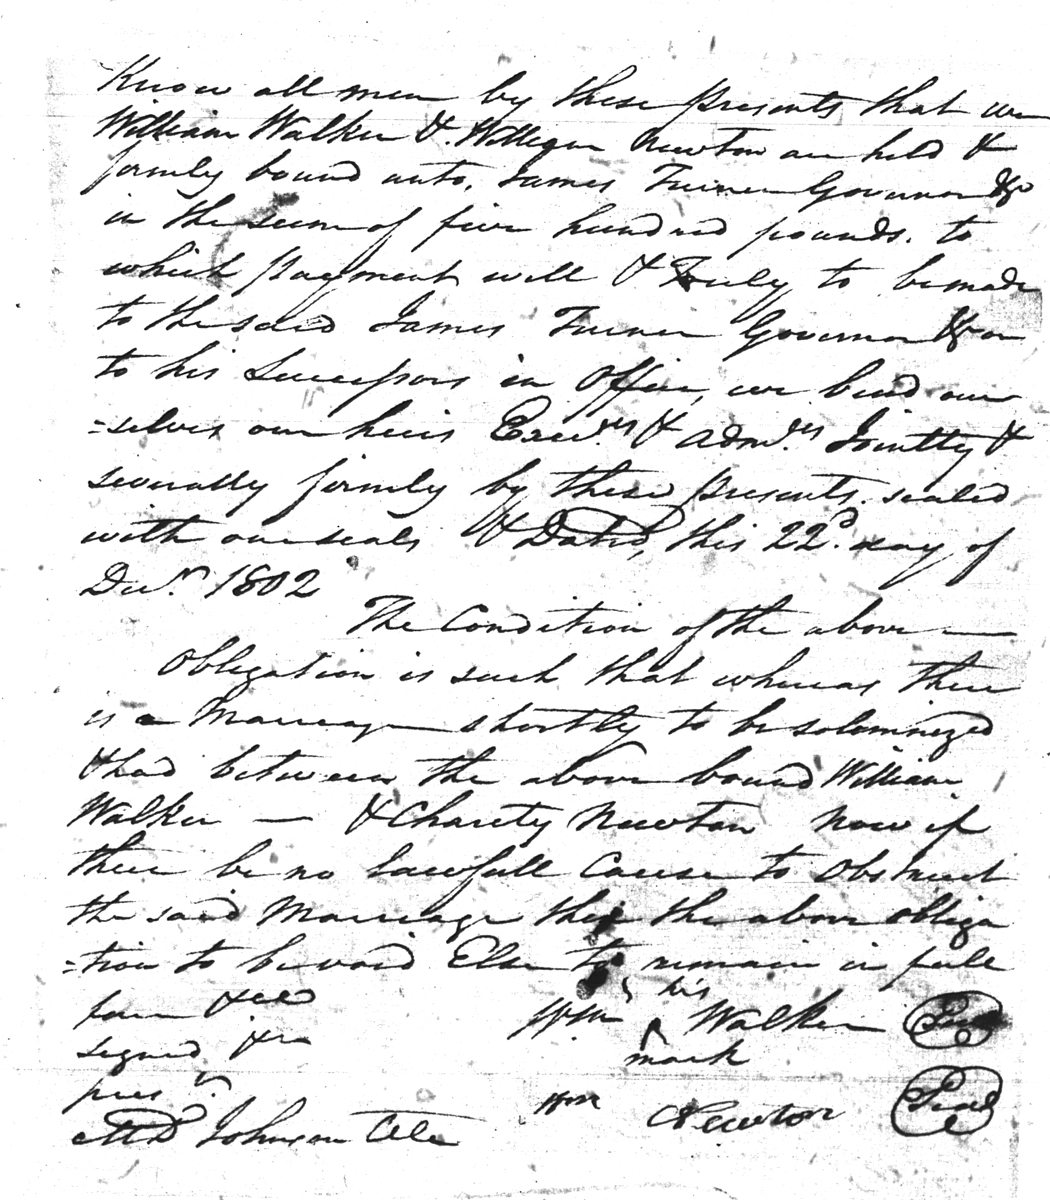 Know all men by these presents that we
William Walker & William Newton are held &
firmly bound unto, James Turner Governor &c
in the sum of five hundred pounds. to
which payment will & Truly to be made
to the said James Turner Governor &c or
to his Successors in Office, we bind our
=selves our heirs Execrs & admrs Jointly &
severally firmly by these presents. sealed
with our seals & Dated, this 22d. day of
Decr. 1802
The Condition of the above —
Obligation is such that whereas there
is a Marriage shortly to be solemnized
& had between the above bound William
Walker — & Charity Newton Now if
there be no lawfull Cause to Obstruct
the said Marriage then the above obliga
=tion to be void Else to remain in full
force &c
signed &c in
pres
Johnson
Wm his Walker Seal
mark
Wm Newton Seal